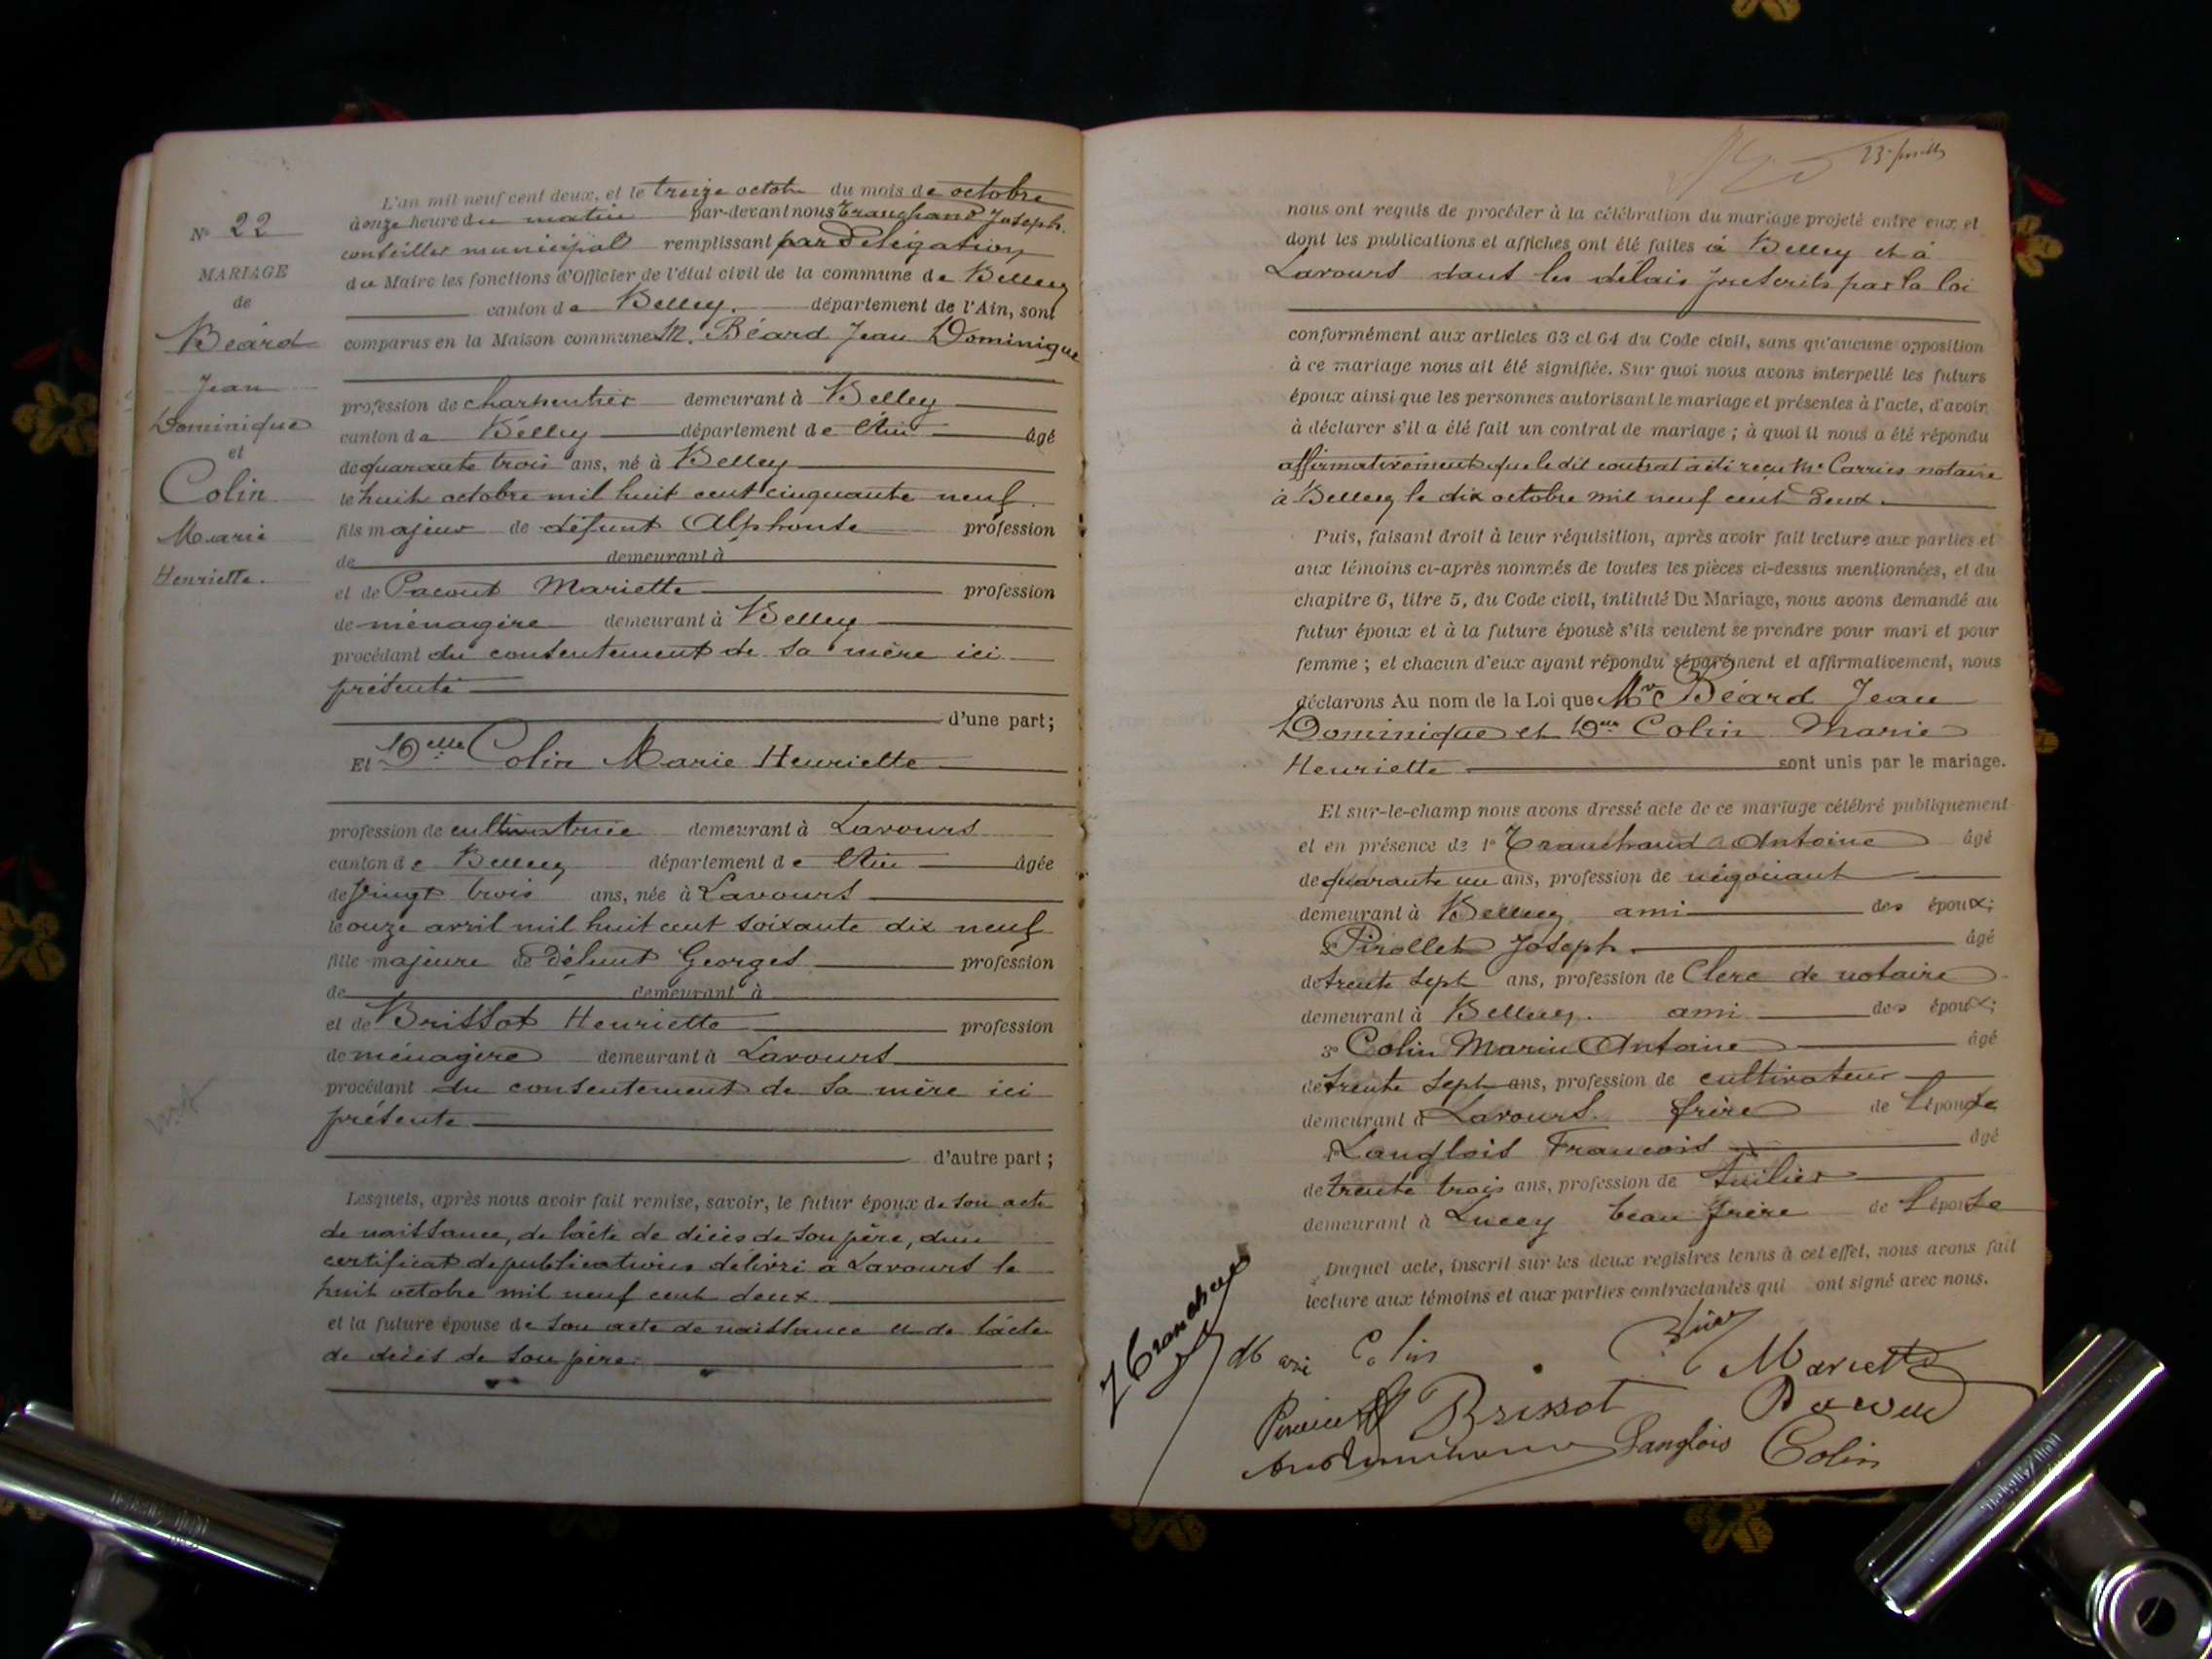 N° 22
MARIAGE
de
Béard
Jean
Dominique
et
Colin
Marie
Henriette.
L'an mil neuf cent deux, et le treize octobre du mois de octobre
à onze heure du matin par-devant nous Tranchand Joseph
conseiller municipal remplissant par Délégation
du Maire les fonctions d'Officier de l'état civil de la commune de Belley
canton de Belley. département de l'Ain, sont
comparus en la Maison commune M. Béard Jean Dominique
profession de charpentier demeurant à Belley
canton de Belley département de l'Ain âgé
de quarante trois ans, né à Belley
le huit octobre mil huit cent cinquante neuf
fils majeur de défunt Alphonse profession
de demeurant à
et de Pacout Mariette profession
de ménagère demeurant à Belley
procédant du consentement de sa mère ici
présente
d'une part;
Et Delle Colin Marie Henriette
profession de cultivatrice demeurant à Lavours
canton de Belley département de l'Ain âgée
de vingt trois ans, née à Lavours
le onze avril mil huit cent soixante dix neuf
fille majeure de Défunt Georges profession
de demeurant à
et de Brissot Henriette profession
de ménagère demeurant à Lavours
procédant du consentement de sa mère ici
présente
d'autre part;
Lesquels, après nous avoir fait remise, savoir, le futur époux de son acte
de naissance, de l'acte de décès de son père, d'un
certificat de publications délivré à Lavours le
huit octobre mil neuf cent deux
et la future épouse de son acte de naissance et de l'acte
de décès de son père.
nous ont requis de procéder à la célébration du mariage projeté entre eux et
dont les publications et affiches ont été faites à Belley et à
Lavours dans les délais prescrits par la loi
conformément aux articles 63 et 64 du Code civil, sans qu'aucune opposition
à ce mariage nous ait été signifiée. Sur quoi nous avons interpellé les futurs
époux ainsi que les personnes autorisant le mariage et présentes à l'acte, d'avoir
à déclarer s'il a été fait un contrat de mariage; à quoi il nous a été répondu
affirmativement que le dit contrat a été reçu Me Carrier notaire
à Belley le dix octobre mil neuf cent deux.
Puis, faisant droit à leur réquisition, après avoir fait lecture aux parties et
aux témoins ci-après nommés de toutes les pièces ci-dessus mentionnées, et du
chapitre 6, titre 5, du Code civil, intitulé Du Mariage, nous avons demandé au
futur époux et à la future épouse s'ils veulent se prendre pour mari et pour
femme; et chacun d'eux ayant répondu séparément et affirmativement, nous
déclarons Au nom de la Loi que Mr Béard Jean
Dominique et Delle Colin Marie
Henriette sont unis par le mariage.
Et sur-le-champ nous avons dressé acte de ce mariage célébré publiquement
et en présence de 1° Tranchand Antoine âgé
de quarante un ans, profession de négociant
demeurant à Belley ami des époux;
2° Pirollet Joseph. âgé
de trente sept ans, profession de Clerc de notaire
demeurant à Belley. ami des époux;
3° Colin Marin Antoine âgé
de trente sept ans, profession de cultivateur
demeurant à Lavours. frère de l'épouse
Langlois Francois âgé
de trente trois ans, profession de tuilier
demeurant à Lucey beau frère de l'épouse
Duquel acte, inscrit sur les deux registres tenus à cet effet, nous avons fait
lecture aux témoins et aux parties contractantes qui ont signé avec nous.
Colin
Mariette
Brissot
Langlois Colin